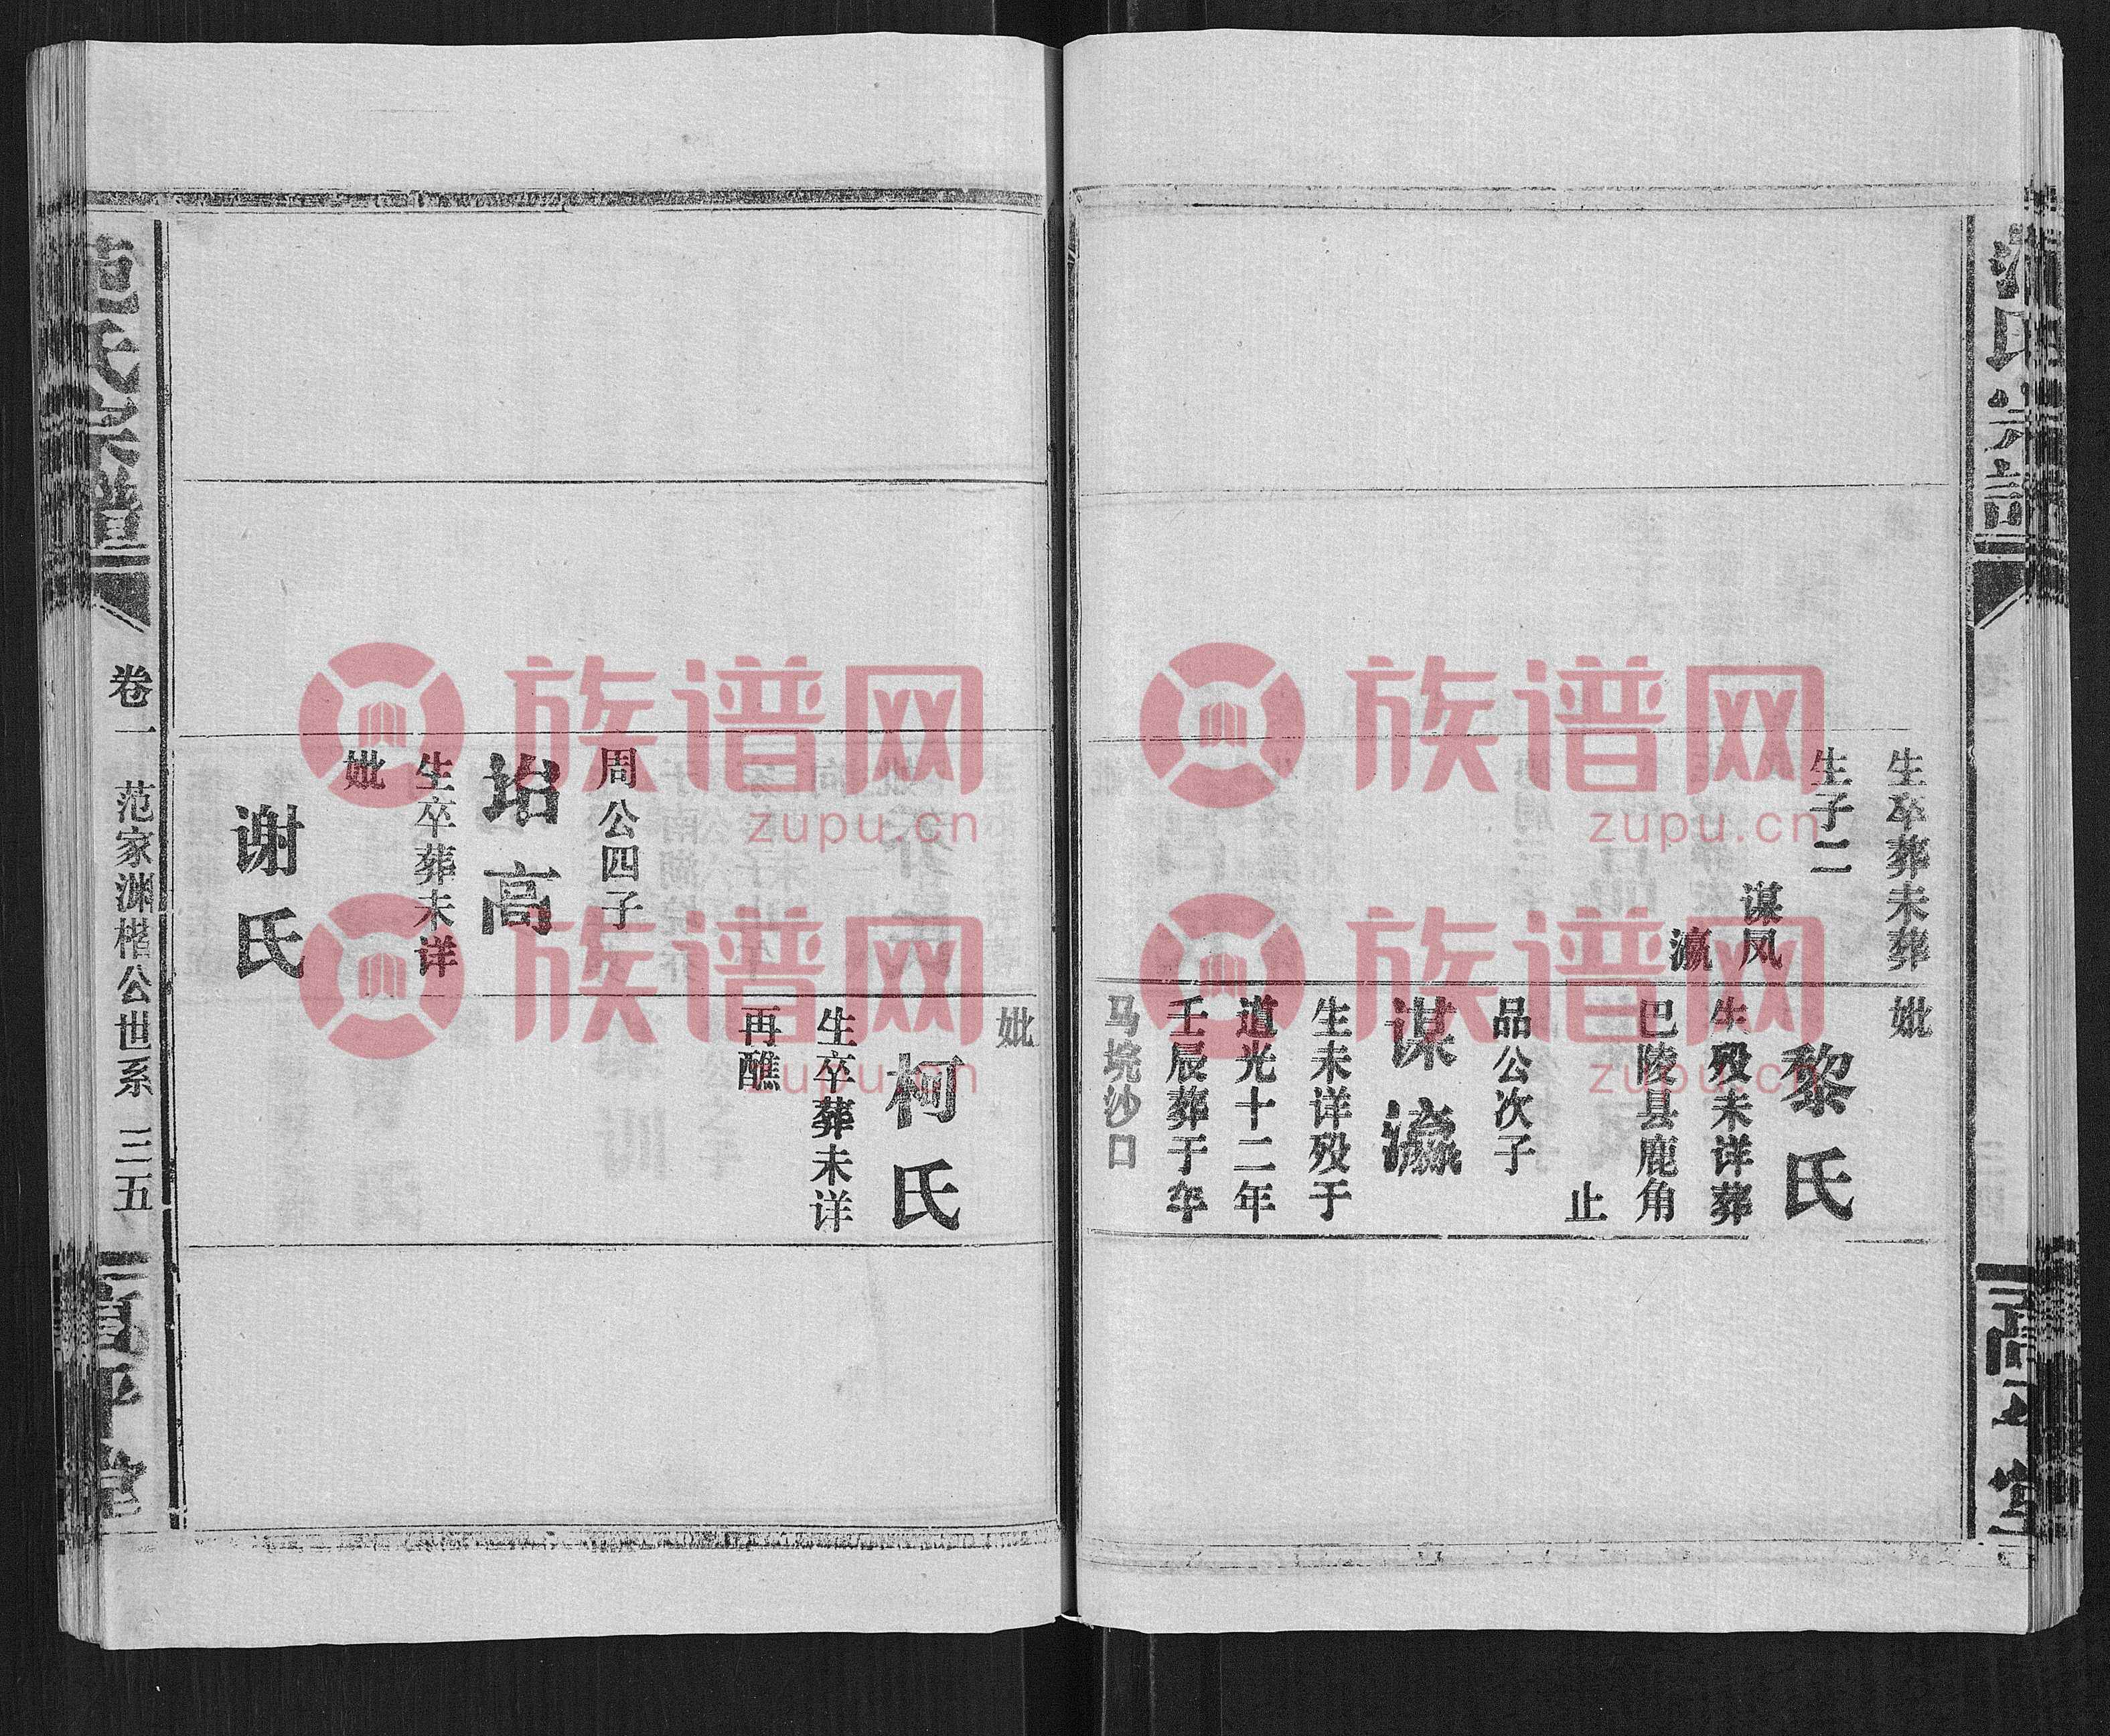 生卒葬未葬
生子二
谋风
瀛
妣
黎氏
生殁未详葬
巴陵县鹿角
止
品公次子
谋瀛
生未详殁于
道光十二年
壬辰葬于年
马垸沙口
妣
柯氏
生卒葬未详
再醮
周公四子
高
生卒葬未详
妣
谢氏
范氏宗谱
卷一
范家渊楷公世系
三五
高平堂
族谱网
zupu.cn
族谱网
zupu.cn
族谱网
zupu.cn
族谱网
zupu.cn